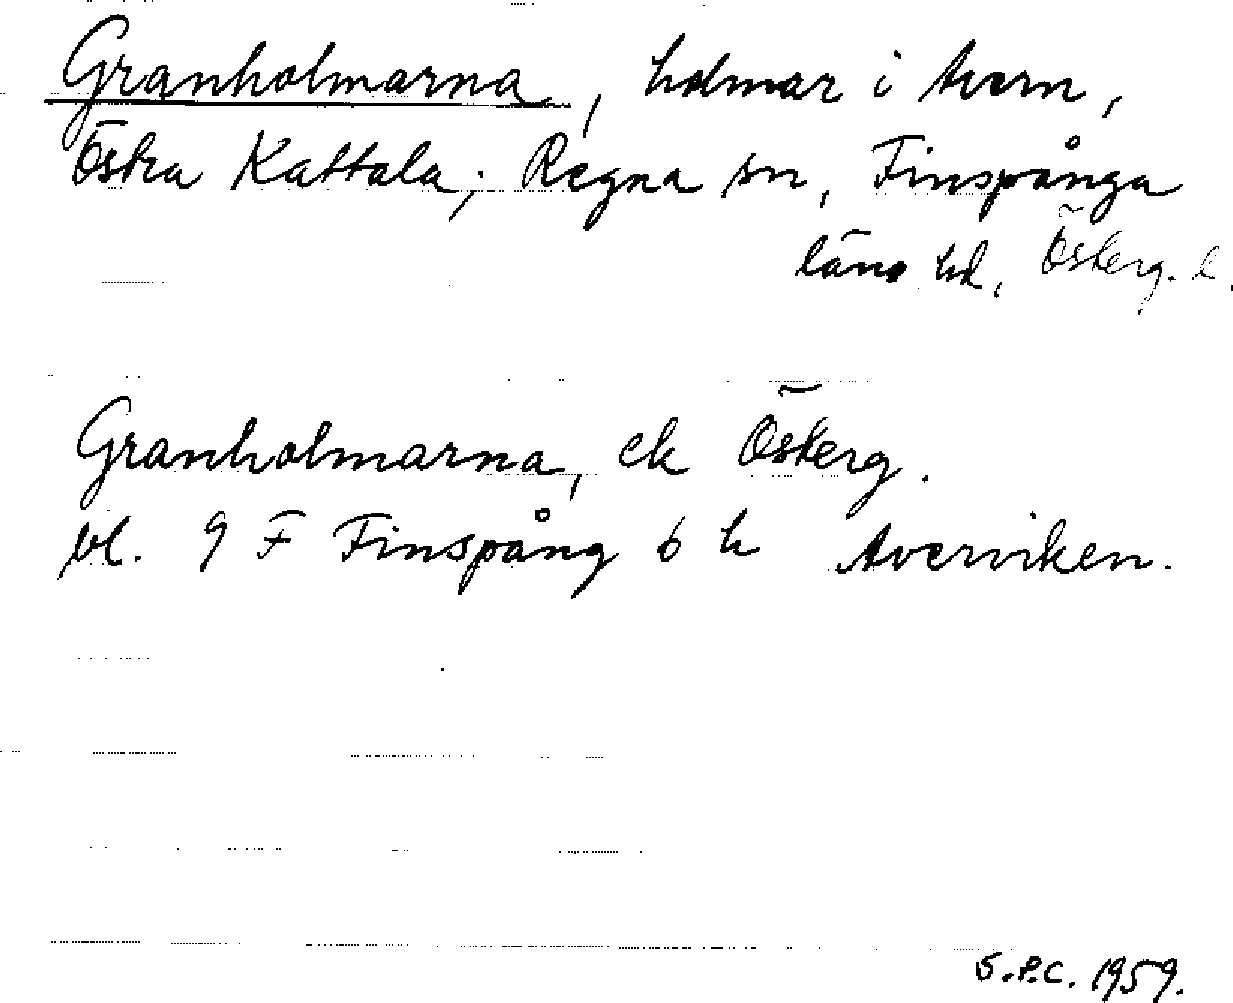 Granholmarna, holmar i Avern,
Östra Kattala; Regna sn, Finspånga
läns hd, Österg. l.
Granholmarna, ek Österg.
bl. 9 F Finspång 6 h Averviken.
S.P.C. 1959.